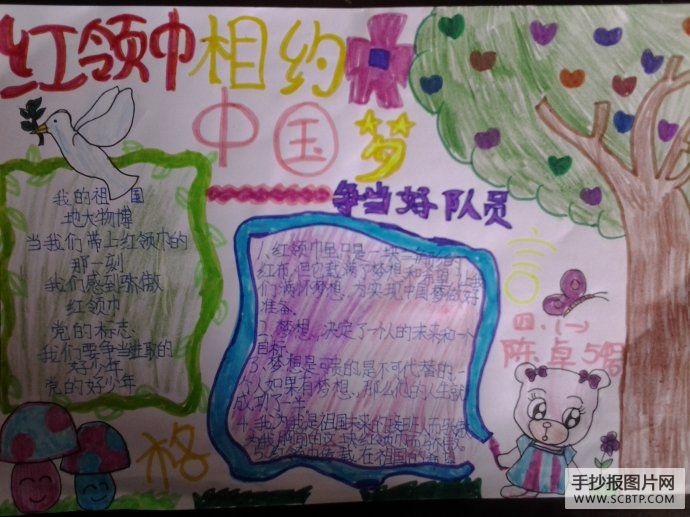 红领巾相约
中国梦
争当好队员
我的祖国
地大物博
当我们带上红领巾的
那一刻
我们感到骄傲
红领巾
党的标志
我们要争当进取的
好少年
党的好少年
1、红领巾虽只是一块
红布,但它载满了梦想和希望
们满怀梦想,为实现中国梦做好
准备.
2、梦想,决定了一个人的未来和一个
目标.
3、梦想是可贵的是不可代替的,一
个人如果有梦想,那么他的人生就
成功了一半
4、我为我是祖国未来的接班人而骄傲
为我胸前的这块红领巾而骄傲
四.(一)
陈卓
格
言
手抄报图片网
WWW.SCBTP.COM